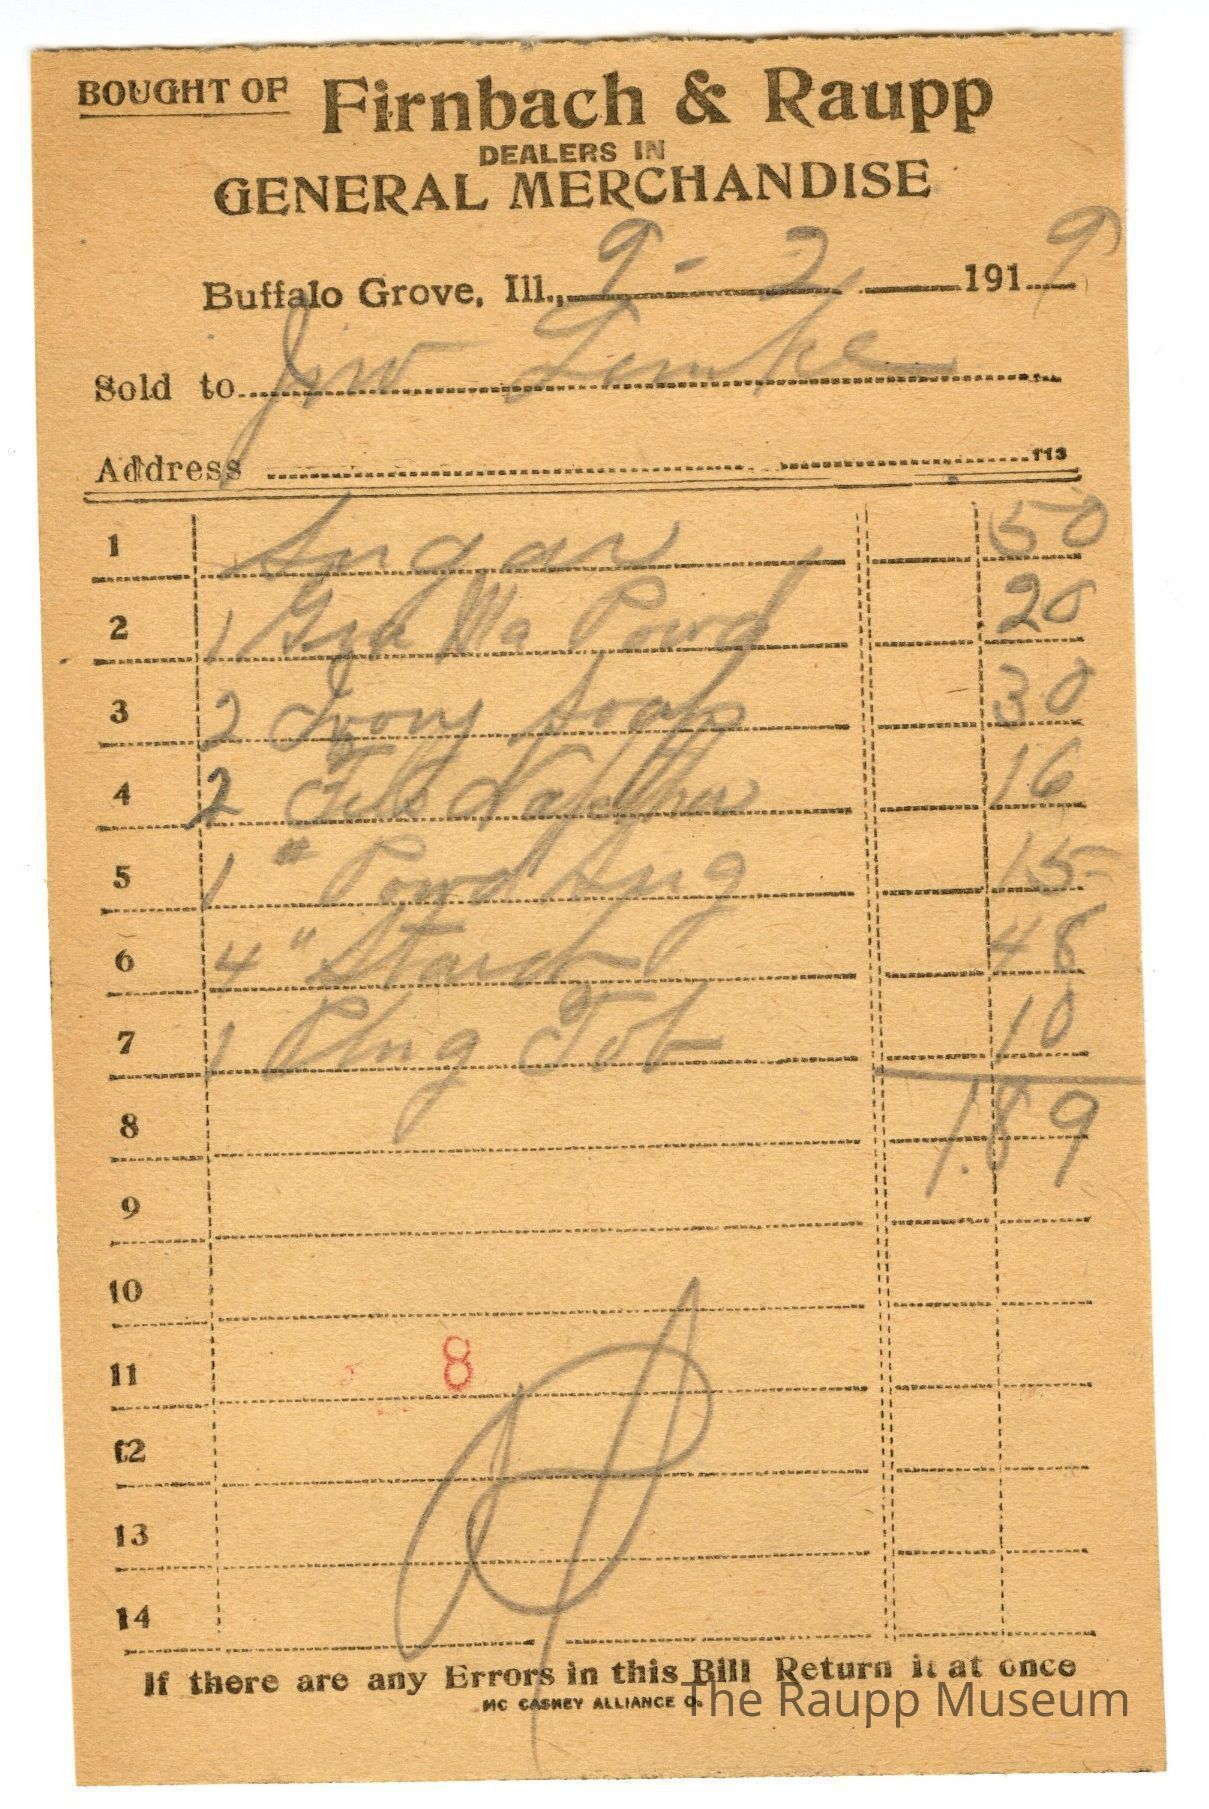 BOUGHT OF Firnbach & Raupp
DEALERS IN
GENERAL MERCHANDISE
Buffalo Grove, Ill., 9 - 2 1919
Sold to Lemke
Address 113
1 Sugar 50
2 1 Powd 20
3 2 Ivory Soap 30
4 2 Fels Naptha 16
5 1 # Powd Sug 15
6 4 " Starch 48
7 1 Plug Tob 10
8 1.89
9
10
11 8
12
13
14
If there are any Errors in this Bill Return it at once
MC CASKEY ALLIANCE O.
The Raupp Museum